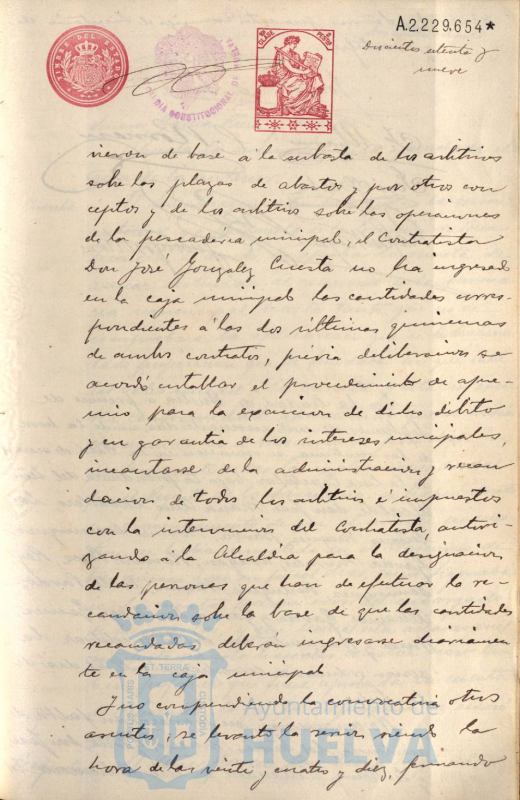 A.2.229.654*
Doscientos ochenta y
nueve
TIMBRE DEL ESTADO
CONSTITUCIONAL DE
PESOS
vieron de base á la subasta de los arbitrios
sobre las plazas de abastos y por otros con
ceptos y de los arbitrios sobre las operaciones
de la pescadería municipal, el Contratista
Don José Gonzalez Cuesta no ha ingresado
en la caja municipal las cantidades corres
pondientes á las dos últimas quincenas
de ambos contratos, previa deliberacion se
acordó entablar el procedimiento de apre
mio para la exaccion de dicho débito
y en garantia de los intereses municipales,
incautarse de la administracion y recau
dacion de todos los arbitrios é impuestos
con la intervencion del Contratista, autori
zando á la Alcaldía para la designacion
de las personas que han de efectuar la re
caudacion sobre la base de que las cantidades
recaudadas deberán ingresarse diariamen
te en la caja municipal
Y no comprendiendo la convocatoria otros
asuntos, se levantó la sesion siendo la
hora de las veinte y cuatro y diez, firmando
PORTUS MARIS ET TERRAE CUSTODIA
Ayuntamiento de
HUELVA